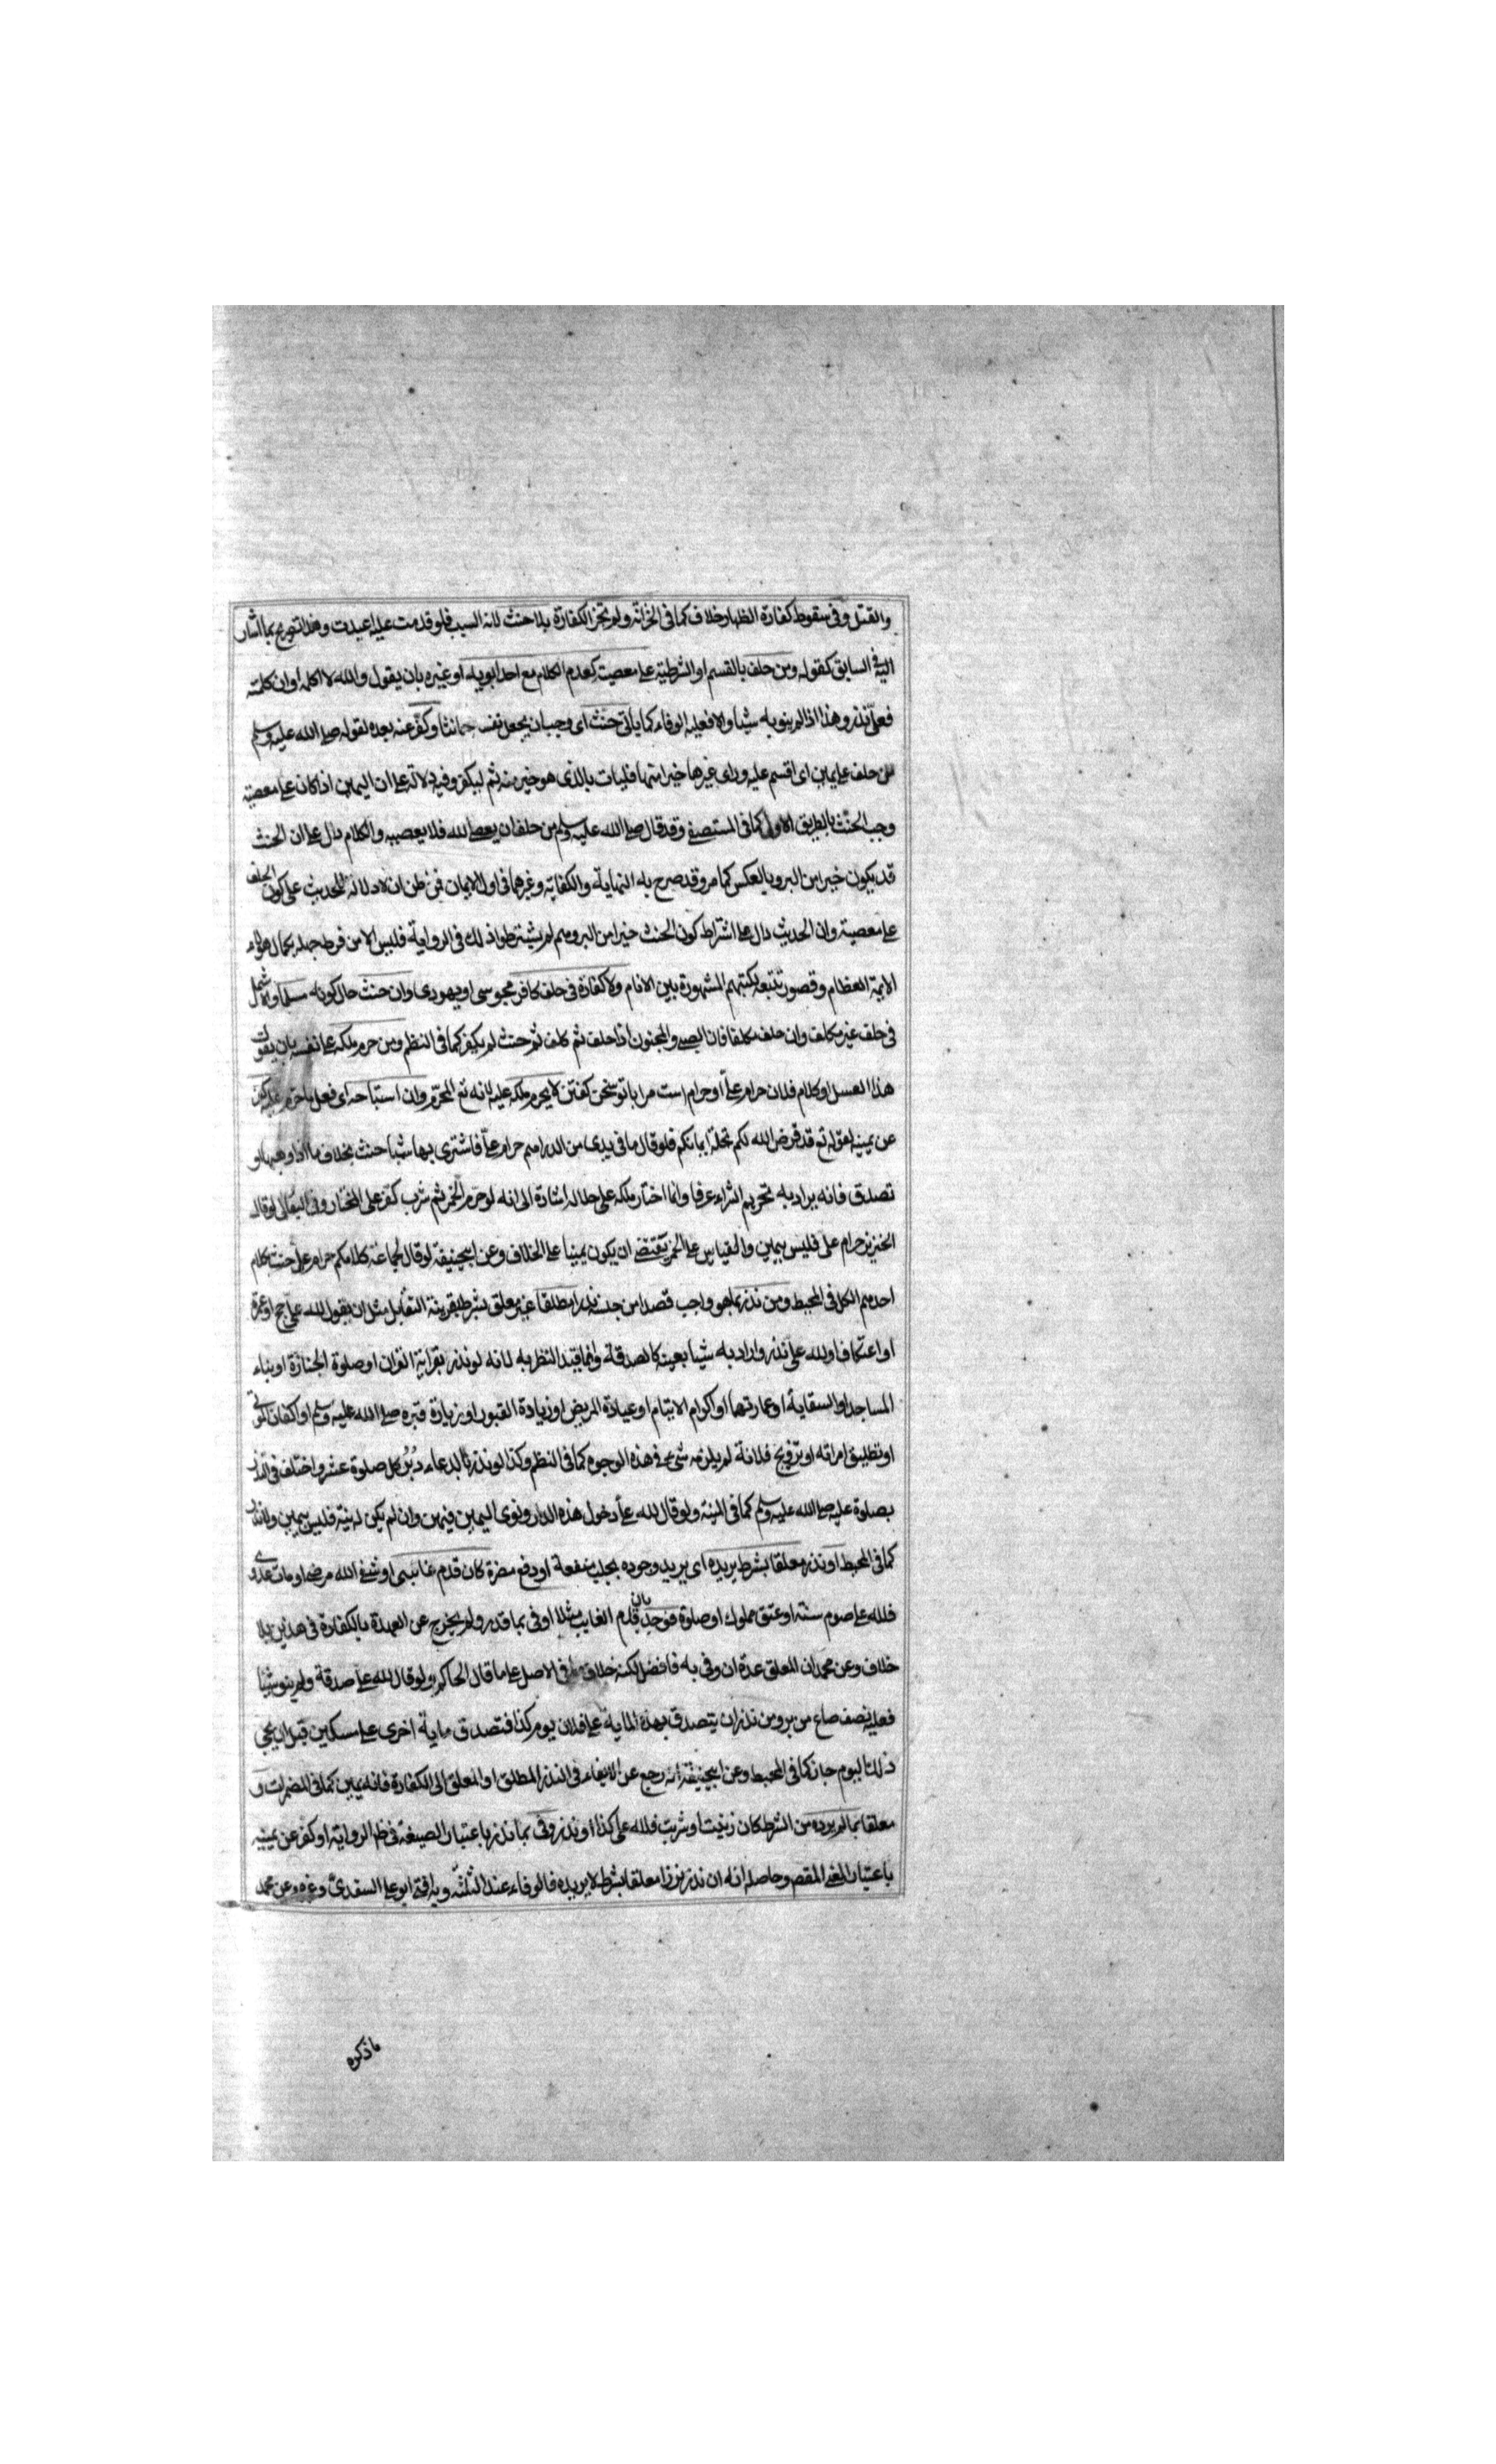 والقتل وفى سقوط كفارة الظهار خلاف كما فى الخزانة ولم تجز الكفارة بلا حنث لانه السبب فلو قدمت عليه اعيدت وهذا تصريح بما اشار
اليه فى السابق كقوله ومن حلف بالقسم او الشرطية على معصية كعدم الكلام مع احد ابويه او غيره بان يقول والله لا اكلمه او ان كلمته
فعلى نذر وهذا اذا لم ينو به شيا والا فعليه الوفاء كما ياتى حنث اى وجب ان يجعل نفسه حانثا وكفر عنه بعده لقوله صلى الله عليه وسلم
من حلف على يمين اى اقسم عليه وراى غيرها خيرا منها فليات بالذى هو خير منه ثم ليكفر وفيه دلالة على ان اليمين اذا كان على معصية
وجب الحنث بالطريق الاولى كما فى المستصفى وقد قال صلى الله عليه وسلم من حلف ان يعصى الله فلا يعصيه والكلام دال على ان الحنث
قد يكون خيرا من البر وبالعكس كما مر وقد صرح به النهاية والكفاية وغيرهما فى اول الايمان فمن ظن ان لا دلالة للحديث على كون الحلف
على معصية وان الحديث دال على اشتراط كون الحنث خيرا من البر وهم لم يشترطوا ذلك فى الرواية فليس الا من فرط جهله بكمال هؤلاء
الايمة العظام وقصور تتبعه لكتبهم المشهورة بين الانام ولا كفارة فى حلف كافر مجوسى او يهودى وان حنث حال كونه مسلما ولا يشمل
فى حلف غير مكلف وان حلف مكلفا فان الصبى والمجنون اذا حلف ثم كلف ثم حنث لم يكفر كما فى النظم ومن حرم ملكه على نفسه بان يقول
هذا العسل او كلام فلان حرام على او حرام است مرا با تو سخن گفتن لا يحرم ملكه عليه لانه تع المحرم وان استباحه اى فعل ما حرم عليه كفر
عن يمينه لقوله تع قد فرض الله لكم تحلة ايمانكم فلو قال ما فى يدى من الدراهم حرام على فاشترى بها شيا حنث بخلاف ما اذا وهبها او
تصدق فانه يراد به تحريم الشراء عرفا وانما اختار ملكه على حلاله اشارة الى انه لو حرم الخمر ثم شرب كفر على المختار وفى البقالى لو قال
الخنزير حرام على فليس بيمين والقياس على الخمر يقتضى ان يكون يمينا على الخلاف وعن ابيحنيفة لو قال لجماعة كلامكم حرام على حنث بكلام
احدهم الكل فى المحيط ومن نذر بما هو واجب قصدا من جنسه نذرا مطلقا غير معلق بشرط بقرينة التقابل مثل ان يقول لله على حج او عمرة
او اعتكاف او لله على نذر واراد به شيا بعينه كالصدقة وانما قيد النظر به لانه لو نذر بقراية القران او صلوة الجنازة او بناء
المساجد او السقاية او عمارتها او اكرام الايتام او عيادة المريض او زيادة القبور او زيارة قبره صلى الله عليه وسلم او اكفان الموتى
او تطليق امراته او تزويج فلانة لم يلزمه شىء فى هذه الوجوه كما فى النظم وكذا لو نذر بالدعاء دبر كل صلوة عشر واختلف فى النذر
بصلوة عليه صلى الله عليه وسلم كما فى المنية ولو قال لله على دخول هذه الدار ونوى اليمين فيمين وان لم يكن له نية فليس بيمين ولا نذر
كما فى المحيط او نذر معلقا بشرط يريده اى يريد وجوده بجلب منفعة او دفع مضرة كان قدم غائبى او شفى الله مرضى او مات عدوى
فلله على صوم سنة او عتق مملوك او صلوة فوجد بان قدم الغايب مثلا اوفى بما قدر ولم يخرج عن العهدة بالكفارة فى هذين بلا
خلاف وعن محمد ان المعلق عدة ان وفى به فافضل لكنه خلاف ما فى الاصل على ما قال الحاكم ولو قال لله على صدقة ولم ينو شيا
فعليه نصف صاع من بر ومن نذر ان يتصدق بهذه الماية على فلان يوم كذا فتصدق ماية اخرى على مسكين قبل ان يجى
ذلك اليوم جاز كما فى المحيط وعن ابيحنيفة انه رجع عن الايفاء فى النذر المطلق او المعلق الى الكفارة فانه يمين كما فى المضمرات و
معلقا بما لم يرده من الشرط كان زنيت او شربت فلله على كذا او نذر وفى بما نذر باعتبار الصيغة فى ظاهر الرواية او كفر عن يمينه
باعتبار المعنى المقصو وحاصله انه ان نذر نذرا معلقا بشرط لا يريده فالوفاء عند الثلثة وبه افتى ابو على السغدى وغيره وعن محمد
ما ذكره